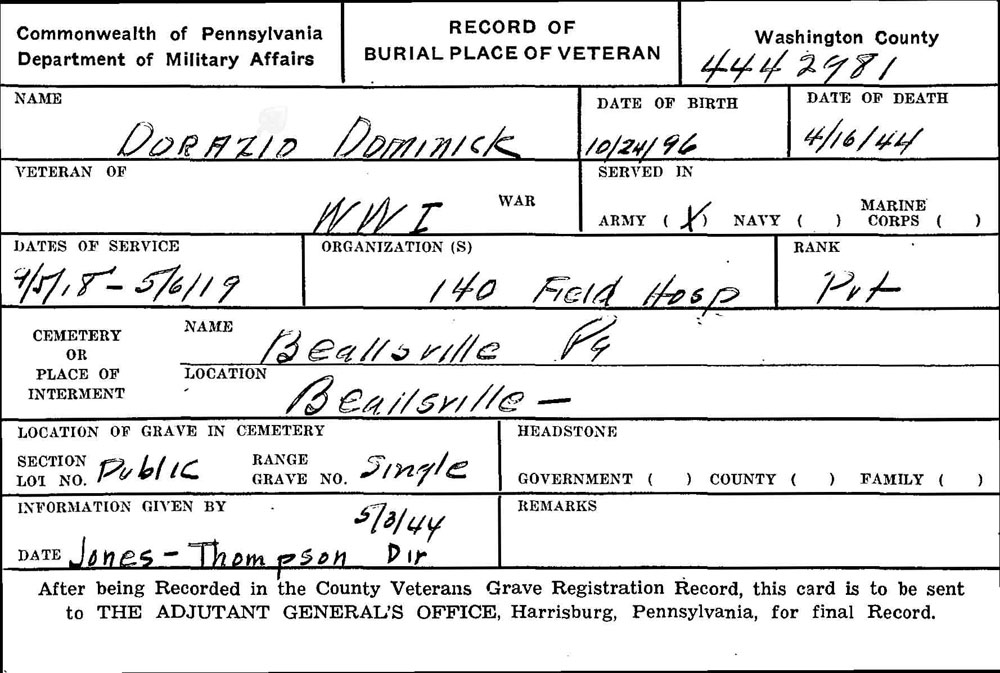 Commonwealth of Pennsylvania
Department of Military Affairs
RECORD OF
BURIAL PLACE OF VETERAN
Washington County
4442981
NAME
DORAZIO DOMINICK
DATE OF BIRTH
10/24/96
DATE OF DEATH
4/16/44
VETERAN OF
WWI WAR
SERVED IN
ARMY (X) NAVY ( ) MARINE CORPS ( )
DATES OF SERVICE
9/5/18 - 5/6/19
ORGANIZATION (S)
140 Field Hosp
RANK
Pvt
CEMETERY
OR
PLACE OF
INTERMENT
NAME
Beallsville Pa
LOCATION
Beallsville -
LOCATION OF GRAVE IN CEMETERY
SECTION
LOT NO. Public
RANGE
GRAVE NO. Single
HEADSTONE
GOVERNMENT ( ) COUNTY ( ) FAMILY ( )
INFORMATION GIVEN BY
5/3/44
DATE Jones - Thompson Dir
REMARKS
After being Recorded in the County Veterans Grave Registration Record, this card is to be sent
to THE ADJUTANT GENERAL'S OFFICE, Harrisburg, Pennsylvania, for final Record.